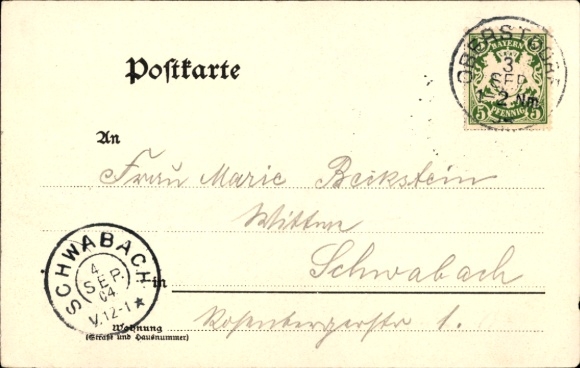 Postkarte
BAYERN
5 5
PFENNIG
OBERSTDORF
3
SEP.
1-2 Nm.
04
An
Frau Marie Beikstein
Wittwe
Schwabach
in
Rosenbergerstr 1.
SCHWABACH
4
SEP.
04
V.12-1★
Wohnung
(Straße und Hausnummer)